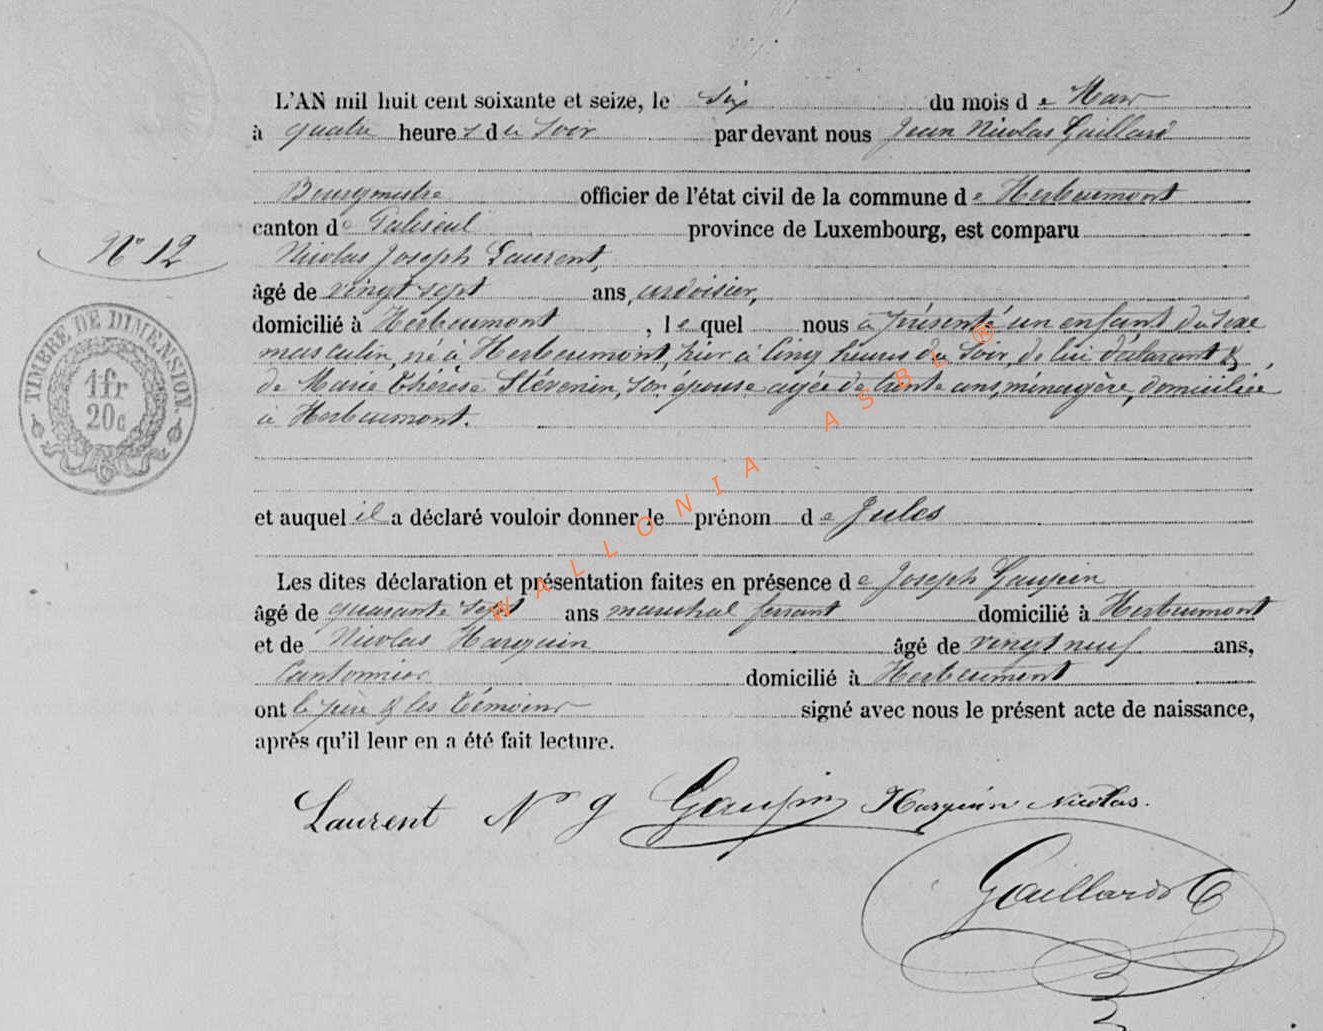 L'AN mil huit cent soixante et seize, le six du mois de Mars
à quatre heures du soir par devant nous Jean Nicolas Gaillard
Bourgmestre officier de l'état civil de la commune de Herbeumont
canton de Paliseul province de Luxembourg, est comparu
N° 12
Nicolas Joseph Laurent,
âgé de vingt sept ans, ardoisier,
domicilié à Herbeumont, lequel nous a présenté un enfant du sexe
masculin, né à Herbeumont, hier à cinq heures du soir, de lui déclarant &
de Marie Thérèse Stévenin, son épouse agée de trente ans, ménagère, domiciliée
à Herbeumont.
TIMBRE DE DIMENSION.
1fr
20c
et auquel il a déclaré vouloir donner le prénom de Jules
Les dites déclaration et présentation faites en présence de Joseph Gaupin
âgé de quarante sept ans maréchal ferrant domicilié à Herbeumont
et de Nicolas Harquin âgé de vingt neuf ans,
Cantonnier domicilié à Herbeumont
ont le père & les témoins signé avec nous le présent acte de naissance,
après qu'il leur en a été fait lecture.
Laurent N J Gaupin Harquin Nicolas.
Gaillard
WALLONIA ASBL ®